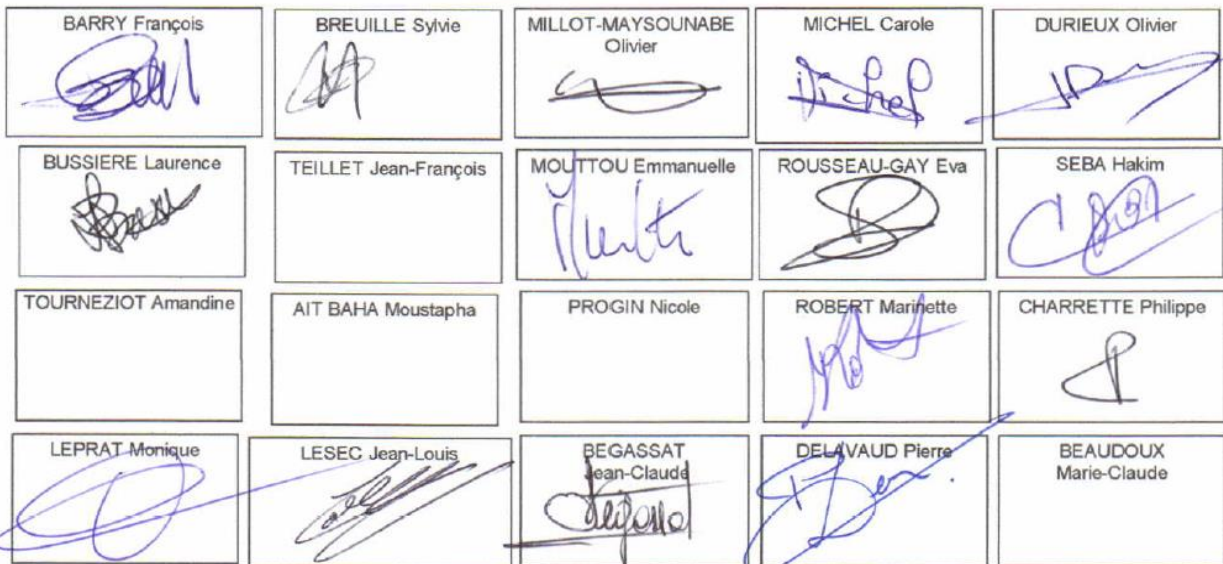 BARRY François
BREUILLE Sylvie
MILLOT-MAYSOUNABE
Olivier
MICHEL Carole
Michel
DURIEUX Olivier
BUSSIERE Laurence
TEILLET Jean-François
MOUTTOU Emmanuelle
ROUSSEAU-GAY Eva
SEBA Hakim
TOURNEZIOT Amandine
AIT BAHA Moustapha
PROGIN Nicole
ROBERT Marinette
CHARRETTE Philippe
LEPRAT Monique
LESEC Jean-Louis
BEGASSAT
Jean-Claude
DELAVAUD Pierre
BEAUDOUX
Marie-Claude